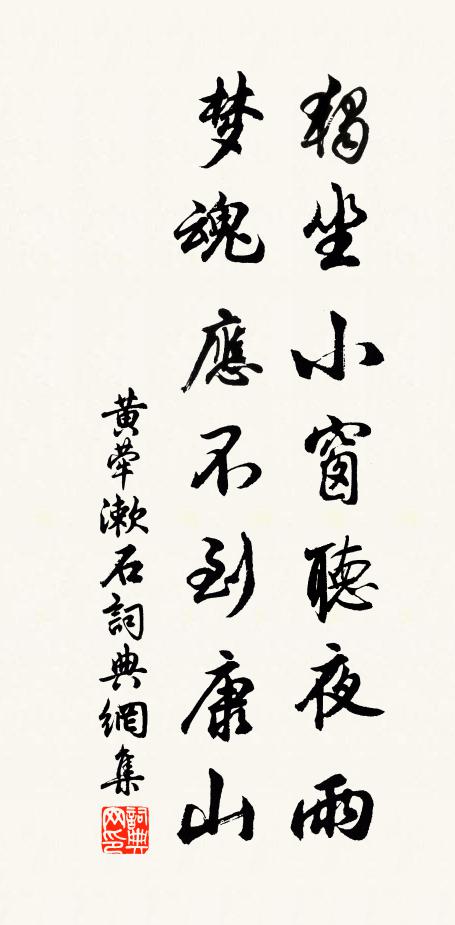 獨坐小窗聽夜雨
梦魂應不到康山
黄荦漱石詞典網集
詞典
网印